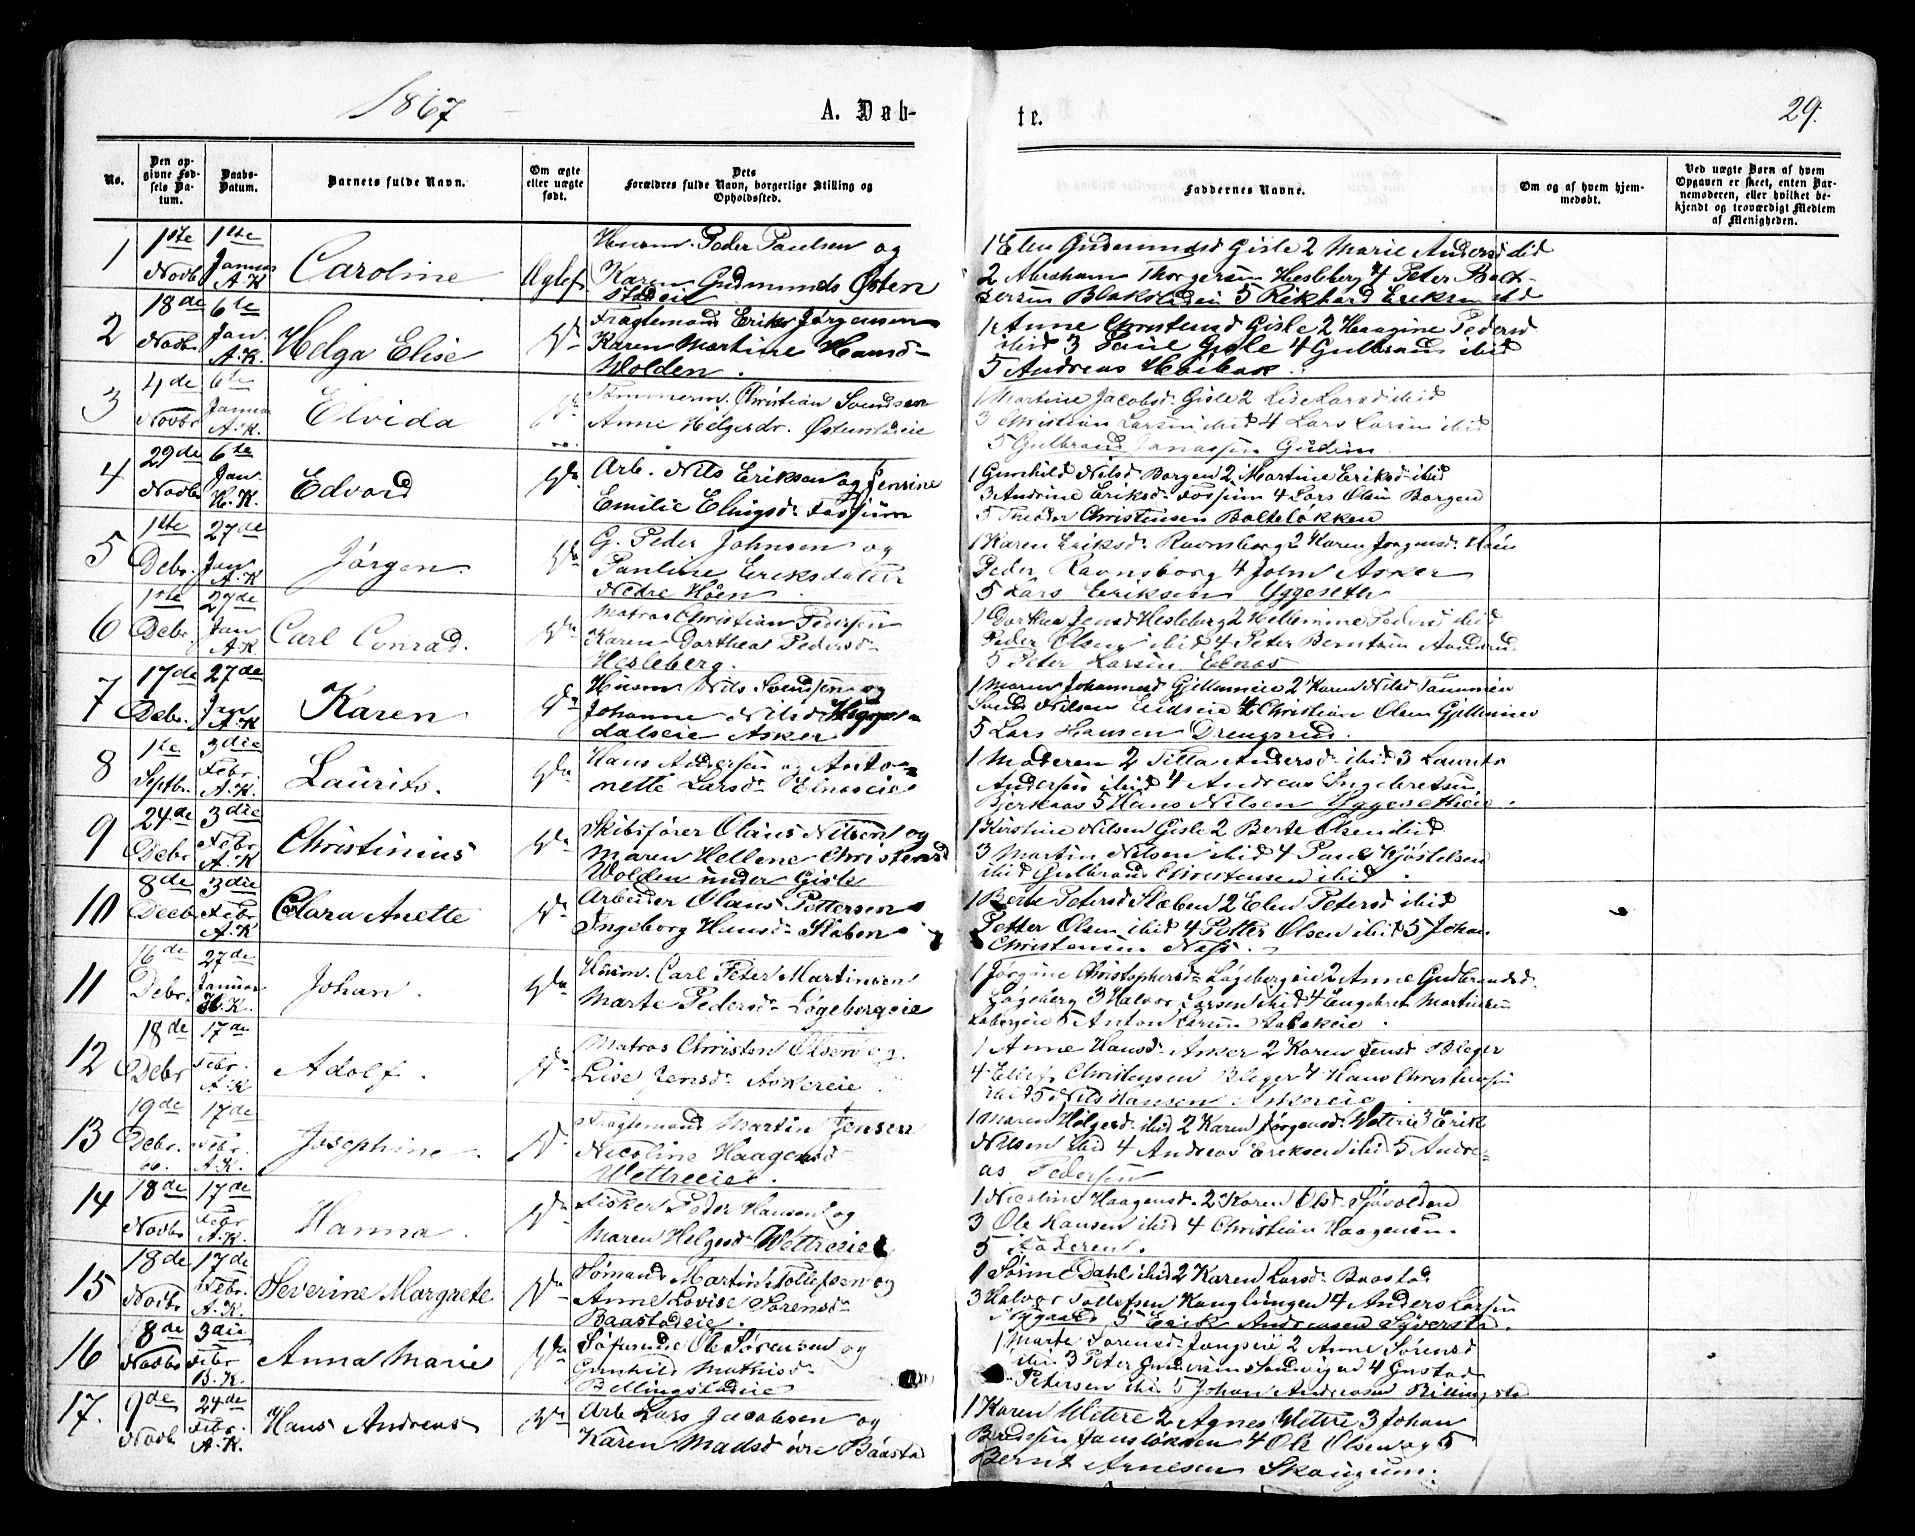 1867
A. Døb-
te.
29.
No.
Den op-
givne Fød-
sels Da-
tum.
Daabs-
Datum.
Barnets fulde Navn.
Om ægte
eller uægte
født.
Dets
Forældres fulde Navn, borgerlige Stilling og
Opholdssted.
Faddernes Navne.
Om og af hvem hjem-
medøbt.
Ved uægte Børn af hvem
Opgaven er skeet, enten Bar-
nemoderen, eller hvilket be-
kjendt og troværdigt Medlem
af Menigheden.
1
1ste
Novbr
1ste
Januar
A. K
Caroline
Ægtef.
Huusm. Peder Paulsen og
Karen Gudmunds Østen
stadeie
1 Elen Gudmundsd Gisle 2 Marie Andersd ibid
2 Abraham Thorgersen Hesleberg 4 Peter
5 Rikhard Eriksen ibid
2
18de
Novbr
6te
Jan.
A. K.
Helga Elise
Do
Fragtemand Erik Jørgensen
Karen Martine Hansd
Wolden.
1 Anne Christensd Gisle 2 Haagine Pedersd
ibid 3 Gisle 4 Gulbrand ibid
5 Andreas Høibak.
3
4de
Novbr
6te
Januar
A. K.
Elvida
Do
Tømmerm. Christian Svendsen
Anne Helgesdr. Østenstadeie
1 Martine Jacobsd. Gisle 2 Lise Larsd ibid
3 Christian Larsen ibid 4 Lars Larsen ibid
5 Gulbrand Jonassen Gudim
4
29de
Novbr
6te
Jan.
H. K.
Edvard
Do
Arb. Nils Eriksen og Jensine
Emilie Elingsd. Fossum
1 Gunhild Nilsd Borgen 2 Martine Eriksd ibid
3 Andrine Eriksd. Fossum 4 Lars Olsen Borgen
5 Theodor Christensen Bolteløkken
5
1ste
Debr.
27de
Jan
A. K
Jørgen.
Do
G. Peder Johnsen og
Pauline Eriksdatter
Nedre Høen
1 Karen Eriksd. Ravnsborg 2 Karen Jørgensd. Høen
Peder Ravnsborg 4 John Asker
5 Lars Eriksen Yggeseter
6
1ste
Debr.
27de
Jan
A. K
Carl Conrad.
Do
Matros Christian Pedersen
Karen Dorthea Pedersd.
Hesleberg.
1 Dorthea Jensd Hesleberg 2 Hellemine Pedersd ibid
Peder Olsen ibid 4 Peter Berntsen
5 Peter Larsen Elnæs
7
17de
Debr.
27de
Jan
A. K
Karen
Do
Huusm Nils Svendsen og
Johanne Nilsd
dalseie Asker
1 Maren Johannesd Gjellumeie 2 Karen Nilsd
Svend Nilsen 4 Christian Olsen Gjellumeie
5 Lars Hansen Drengsrud.
8
1ste
Septbr.
3die
Febr
A. K.
Laurits.
Do
Hans Andersen og Anto-
nette Larsd. Elnæseie
1 Moderen 2 Andersd. ibid 3 Laurits
Andersen ibid 4 Andreas Ingebretsen
Bjerkaas 5 Hans Nilsen Yggesetheie.
9
24de
Debr
3die
Febr
A. K
Christinius
Do
Skibsfører Olaus Nilsen og
Maren Hellene Christensd
Wolden under Gisle
1 Kirstine Nilsen Gisle 2 Berte Olsen ibid
3 Martin Nilsen ibid 4 Paul Kjøstelsen
ibid Gulbrand Christensen ibid.
10
8de
Decbr
3die
Febr
A. K
Clara Anette
Do
Arbeider Olaus Pettersen
Ingeborg Hansd. Slæben
1 Berte Petersd Slæben 2 Elen Petersd ibid
Petter Olsen ibid 4 Petter Olsen ibid 5 Johan
Christensen Næss.
11
16de
Debr.
27de
Januar
H. K.
Johan.
Do
Huusm. Carl Peter Martinsen
Marte Pedersd. Løgebergeie
1 Jørgine Christophersd. Løgebergeie 2 Anne Gudbrandsd.
Løgeberg 3 Halvor Larsen ibid 4 Engebret Martinsen
5 Anton Larsen
12
18de
Debr
17de
Febr.
A. K
Adolf.
Do
Matros Christen Olsen og
Lise Jensd. Askereie.
1 Anne Hansd. Asker 2 Karen Jensd Bleger
4 Ellef Christensen Bleger 4 Hans Christensen
ibid 5 Nils Hansen Askereie.
13
19de
Debr.
17de
Febr.
A. K.
Josephine.
Do
Fragtemand Martin Jensen
Nicoline Haagensd
Wettreeie.
1 Maren Helgesd. ibid 2 Karen Jørgensd. Wettre 3 Erik
Nilsen ibid 4 Andreas Eriksen ibid 5 Andre-
as Pedersen
14
18de
Novbr
17de
Febr
A. K.
Hanna.
Do
Fisker Peder Hansen og
Maren Helgesd Wettreeie
1 Nicoline Haagensd. 2 Karen Olsd. Sjøvolden
3 Ole Hansen ibid 4 Christian Haagensen.
5 Faderen.
15
18de
Novbr
17de
Febr.
A. K.
Severine Margrete
Do
Sømand Martin Tollefsen og
Anne Lovise Sørensd.
Baastadeie.
1 Dahl ibid 2 Karen Larsd. Baastad
3 Halvor Tollefsen Konglungen 4 Anders Larsen
5 Erik Andreasen Syverstad.
16
8de
Novbr
3die
Febr
B. K.
Anna Marie
Do
Ole Sørensen og
Gunhild Mathisd.
Billingstadeie
1 Marte Sørensd. 2 Anne Sørensd
ibid 3 Peter Gundersen Sandvigen 4 Gustav
Petersen ibid 5 Johan Andreasen Billingstad
17.
9de
Novbr
24de
Febr.
A. K.
Hans Andreas
Do
Arb. Lars Jacobsen og
Karen Madsd øvre Baastad
1 Karen Wettre 2 Agnes Wettre 3 Johan
Berntsen Jansløkken 4 Ole Olsen og 5
Bernt Arnesen Skaugum.